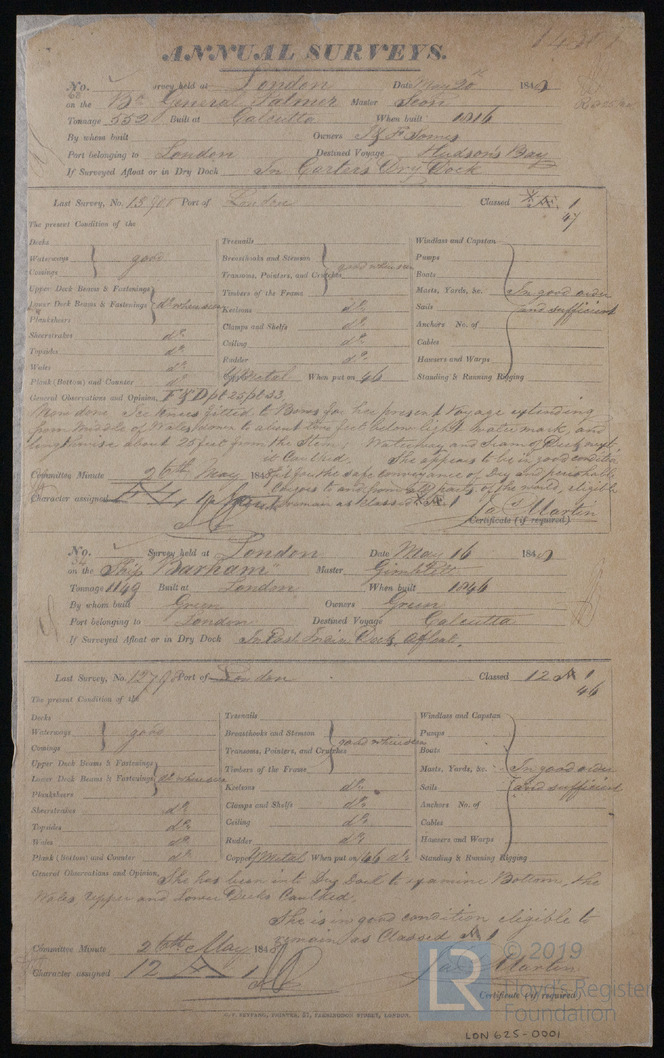 ANNUAL SURVEYS.
No. 68 Survey held at London Date May 20th 184
on the Bc General Palmer Master
Tonnage 552 Built at Calcutta When built 1816
By whom built Owners J & F Somes
Port belonging to London Destined Voyage Hudson's Bay
If Surveyed Afloat or in Dry Dock In Curlers Dry Dock
Last Survey, No. Port of London Classed 1
47
The present Condition of the
Decks
Waterways good
Comings
Upper Deck Beams & Fastenings
Lower Deck Beams & Fastenings do. when seen
Plankshears
Sheerstrakes do.
Topsides do.
Wales do.
Plank (Bottom) and Counter do.
Treenails
Breasthooks and Stemson
Transoms, Pointers, and Crutches good when seen
Timbers of the Frame
Keelsons do.
Clamps and Shelfs do.
Ceiling do.
Rudder do.
Y Metal When put on 46
Windlass and Capstan
Pumps
Boats
Masts, Yards, &c. In good order
Sails and sufficient
Anchors No. of
Cables
Hawsers and Warps
Standing & Running Rigging
General Observations and Opinion, F & D pt 25 pt 33
Now done Ice knees fitted to Bows for her present Voyage extending
from Middle of Wales down to about two feet below light water mark, and
lengthwise about 25 feet from the Stem; Waterways and seams of Deck
Caulked. She appears to be in good condition
Committee Minute 26th May 184 fit for the safe conveyance of Dry and perishable
Cargoes to and from all parts of the world, eligible
Character assigned to remain as Classed 1
Jas. Martin
Certificate (if required)
No. 34 Survey held at London Date May 16 184
on the Ship "Barham" Master Gimblett
Tonnage 1149 Built at London When built 1846
By whom built Green Owners Green
Port belonging to London Destined Voyage Calcutta
If Surveyed Afloat or in Dry Dock In East India Dock, Afloat.
Last Survey, No. Port of London Classed 12 A 1
46
The present Condition of the
Decks
Waterways good
Comings
Upper Deck Beams & Fastenings
Lower Deck Beams & Fastenings do. when seen
Plankshears
Sheerstrakes do.
Topsides do.
Wales do.
Plank (Bottom) and Counter do.
Treenails
Breasthooks and Stemson
Transoms, Pointers, and Crutches good when seen
Timbers of the Frame
Keelsons do.
Clamps and Shelfs do.
Ceiling do.
Rudder do.
Copper Y Metal When put on 46 do.
Windlass and Capstan
Pumps
Boats
Masts, Yards, &c. In good order
Sails and sufficient
Anchors No. of
Cables
Hawsers and Warps
Standing & Running Rigging
General Observations and Opinion, She has been into Dry Dock to examine Bottom, the
Wales, Upper and Lower Decks Caulked.
She is in good condition eligible to
remain as Classed A 1
Committee Minute 26th May 184
Character assigned 12 A 1
Jas. Martin
Certificate (if required)
PRINTER, 57, FARRINGDON STREET, LONDON.
LR © 2019
Lloyd's Register
Foundation
LON 625-0001